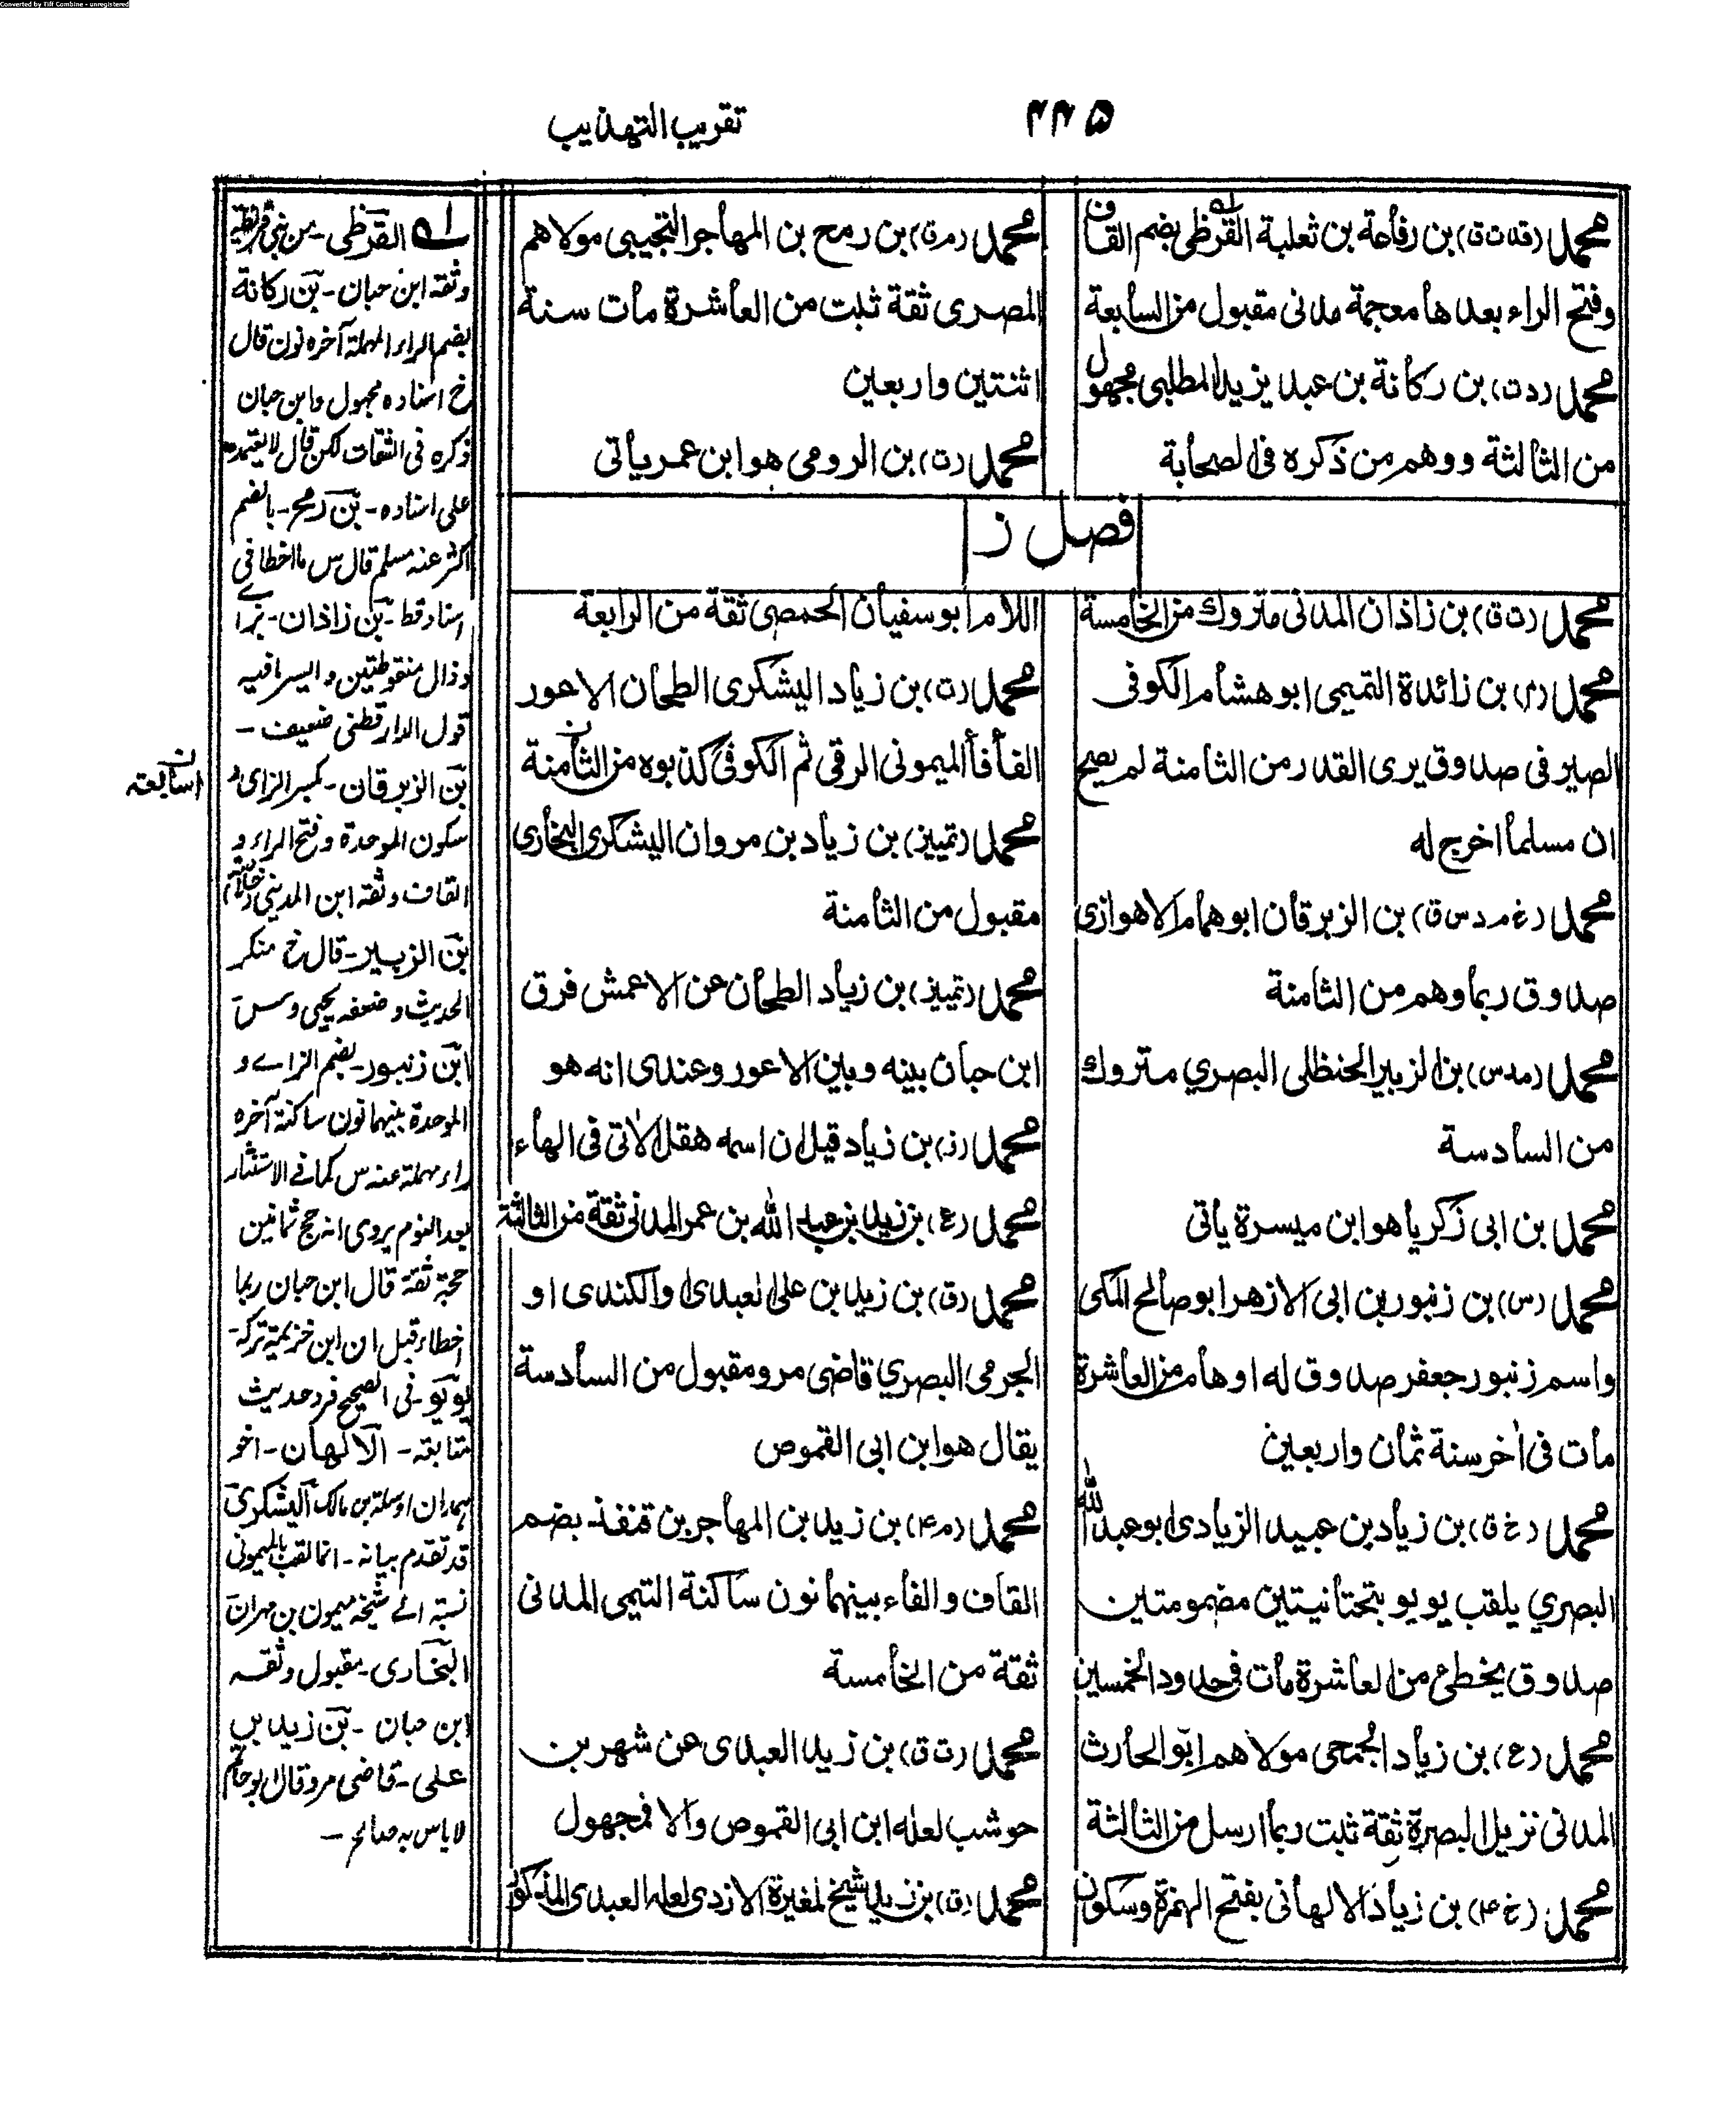 Converted by Tiff Combine - unregistered
۴۴۵
تقريب التهذيب
محمد (قد ت ق) بن رفاعة بن ثعلبة القرظي بضم القاف
وفتح الراء بعدها معجمة مدني مقبول من السابعة
محمد (د ت) بن ركانة بن عبد يزيد المطلبي مجهول
من الثالثة ووهم من ذكره في الصحابة
محمد (م ق) بن رمح بن المهاجر التجيبي مولاهم
المصري ثقة ثبت من العاشرة مات سنة
اثنتين واربعين
محمد (ت) بن الرومي هو ابن عمر يأتي
فصل ز
محمد (ت ق) بن زاذان المدني متروك من الخامسة
محمد (م) بن زائدة التميمي ابو هشام الكوفي
الصيرفي صدوق يرى القدر من الثامنة لم يصح
ان مسلما اخرج له
محمد (خ م د س ق) بن الزبرقان ابو همام الاهوازي
صدوق ربما وهم من الثامنة
محمد (مد س) بن الزبير الحنظلي البصري متروك
من السادسة
محمد بن ابي زكريا هو ابن ميسرة يأتي
محمد (س) بن زنبور بن ابي الازهر ابو صالح المكي
واسم زنبور جعفر صدوق له اوهام من العاشرة
مات في أخر سنة ثمان واربعين
محمد (خ ق) بن زياد بن عبيد الله الزيادي ابو عبد الله
البصري يلقب يويو بتحتانيتين مضمومتين
صدوق يخطئ من العاشرة مات في حدود الخمسين
محمد (ع) بن زياد الجمحي مولاهم ابو الحارث
المدني نزيل البصرة ثقة ثبت ربما ارسل من الثالثة
محمد (خ ۴) بن زياد الالهاني بفتح الهمزة وسكون
اللام ابو سفيان الحمصي ثقة من الرابعة
محمد (ت) بن زياد اليشكري الطحان الاعور
الفأفأ الميموني الرقي ثم الكوفي كذبوه من الثامنة
محمد (تمييز) بن زياد بن مروان اليشكري البخاري
مقبول من الثامنة
محمد (تمييز) بن زياد الطحان عن الاعمش فرق
ابن حبان بينه وبين الاعور وعندي انه هو
محمد بن زياد قيل ان اسمه هقل الاتي في الهاء
محمد (ع) بن زيد بن عبد الله بن عمر المدني ثقة من الثالثة
محمد (ق) بن زيد بن علي العبدي او الكندي او
الجرمي البصري قاضي مرو مقبول من السادسة
يقال هو ابن ابي القموص
محمد (م ۴) بن زيد بن المهاجر بن قنفذ بضم
القاف والفاء بينهما نون ساكنة التيمي المدني
ثقة من الخامسة
محمد (ت ق) بن زيد العبدي عن شهر بن
حوشب لعله ابن ابي القموص والا فمجهول
محمد (ق) بن زيد شيخ لمغيرة الازدي لعله العبدي المذكور
له القرظي - من بني قريظة
وثقه ابن حبان - بن ركانة
بضم الراء المهملة آخره نون قال
خ اسناده مجهول وابن حبان
ذكره في الثقات لكن قال لا يعتمد
على اسناده - بن رمح - بالضم
اكثر عنه مسلم قال س ما اخطا في
اسناد قط - بن زاذان - بزاے
وذال منقوطتين واليسر افيه
قول الدارقطني ضعيف -
بن الزبرقان - بكسر الزاى و
سكون الموحدة وفتح الراء و
القاف وثقه ابن المديني
بن الزبير - قال خ منكر
الحديث وضعفه يحيى وس
ابن زنبور - بضم الزاے و
الموحدة بينهما نون ساكنة آخره
راء مهملة عنه س كما في الاستنثار
بعد النوم يروى انه حج ثمانين
حجة ثقة قال ابن حبان ربما
اخطاء قيل ان ابن خزيمة تركه -
يويو - في الصحيح فرد حديث
متابعة - الالهان - اخو
همدان اوسلة بن مالك اليشكري
قد تقدم بيانه - انما لقب بالميموني
نسبته الے شيخه ميمون بن مهران
البخاري - مقبول وثقه
ابن حبان - بن زيد بن
علي - قاضي مرو قال ابو حاتم
لا باس به صالح -